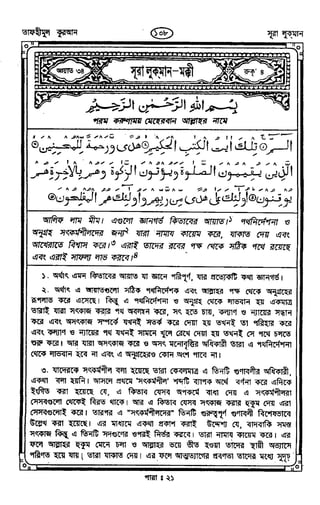 তাফহীমুল কুরআন
১০৮
সূরা লুকমান
আয়াত ৩৪
সূরা লুকমান-মক্কী
রুকু' ৪
بِسْمِ اللّٰهِ الرَّحْمٰنِ الرَّحِيْمِ
পরম করুণাময় মেহেরবান আল্লাহর নামে
الٓمّٓ ۝ تِلْكَ اٰيٰتُ الْكِتٰبِ الْحَكِيْمِ ۝ هُدًى وَّرَحْمَةً لِّلْمُحْسِنِيْنَ ۝
الَّذِيْنَ يُقِيْمُوْنَ الصَّلٰوةَ وَيُؤْتُوْنَ الزَّكٰوةَ وَهُمْ بِالْاٰخِرَةِ هُمْ
يُوْقِنُوْنَ ۝ اُولٰٓئِكَ عَلٰى هُدًى مِّنْ رَّبِّهِمْ وَاُولٰٓئِكَ هُمُ الْمُفْلِحُوْنَ ۝
আলিফ লাম মীম। এগুলো জ্ঞানগর্ভ কিতাবের আয়াত।১ পথনির্দেশনা ও
অনুগ্রহ সৎকর্মশীলদের জন্য২ যারা নামায কায়েম করে, যাকাত দেয় এবং
আখেরাতে বিশ্বাস করে।৩ এরাই তাদের রবের পক্ষ থেকে সঠিক পথে রয়েছে
এবং এরাই সাফল্য লাভ করবে।৪
১. অর্থাৎ এমন কিতাবের আয়াত যা জ্ঞানে পরিপূর্ণ, যার প্রত্যেকটি কথা জ্ঞানগর্ভ।
২. অর্থাৎ এ আয়াতগুলো সঠিক পথনির্দেশক এবং আল্লাহর পক্ষ থেকে অনুগ্রহের
রূপলাভ করে এসেছে। কিন্তু এ পথনির্দেশনা ও অনুগ্রহ থেকে লাভবান হয় একমাত্র
তারাই যারা সৎকাজ করার পথ অবলম্বন করে, সৎ হতে চায়, কল্যাণ ও ন্যায়ের সন্ধান
করে এবং অসৎকাজ সম্পর্কে যখনই সতর্ক করে দেয়া হয় তখনই তা পরিহার করে
এবং কল্যাণ ও ন্যায়ের পথ যখনই সামনে খুলে রেখে দেয়া হয় তখনই সে পথে চলতে
শুরু করে। আর যারা অসৎকাজ করে ও অসৎ মনোবৃত্তির অধিকারী তারা এ পথনির্দেশনা
থেকে লাভবান হবে না এবং এ অনুগ্রহেরও কোন অংশ পাবে না।
৩. যাদেরকে সৎকর্মশীল বলা হয়েছে তারা কেবলমাত্র এ তিনটি গুণাবলীর অধিকারী,
একথা বলা হয়নি। আসলে প্রথমে 'সৎকর্মশীল' শব্দটি ব্যাপক অর্থে বর্ণনা করে এদিকে
ইংগিত করা হয়েছে যে, এ কিতাব যেসব অপকর্মে বাধা দেয় এ সৎকর্মশীলরা
সেসবগুলো থেকেই বিরত থাকে। আর এ কিতাব যেসব সৎকাজ করার হুকুম দেয় এরা
সেসবগুলোই করে। তারপর এ "সৎকর্মশীলদের" তিনটি গুরুত্বপূর্ণ গুণাবলী বিশেষভাবে
উল্লেখ করা হয়েছে। এর মাধ্যমে একথা প্রকাশ করাই উদ্দেশ্য যে, বাদবাকি সমস্ত
সৎকাজ কিন্তু এ তিনটি সদগুণের ওপরই নির্ভর করবে। তারা নামায কায়েম করে। এর
ফলে আল্লাহর হুকুম মেনে চলা ও আল্লাহর ভয়ে ভীত হওয়া তাদের স্থায়ী অভ্যাসে
পরিণত হয়ে যায়। তারা যাকাত দেয়। এর ফলে আত্মত্যাগের প্রবণতা তাদের মধ্যে সুদৃঢ়
পারা : ২১